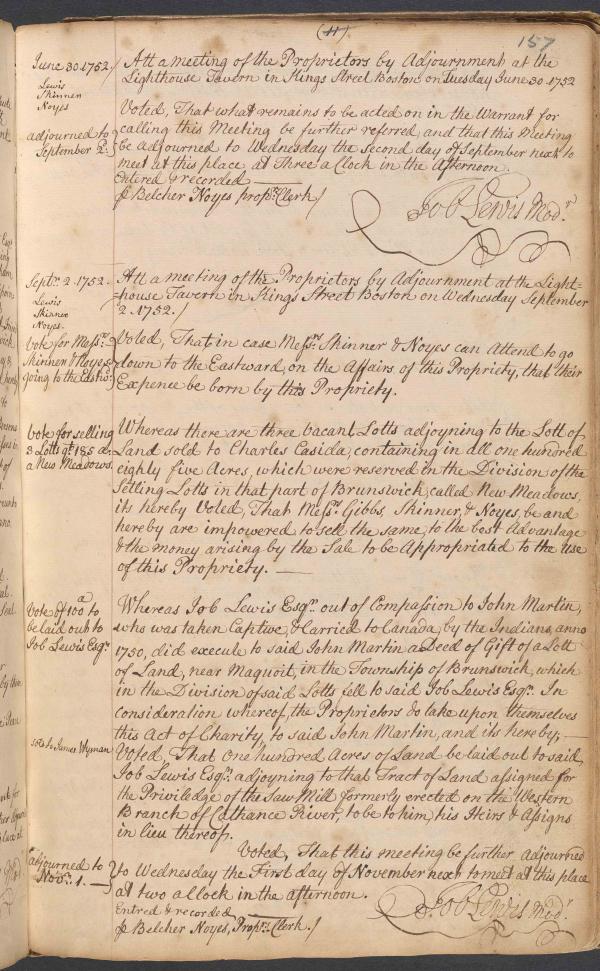 (11)
157
June 30. 1752
Lewis
Skinner
Noyes
Att a meeting of the Proprietors by Adjournment at the
Lighthouse Tavern in Kings Street Boston on Tuesday June 30. 1752
adjourned to
September 2.
Voted, That what remains to be acted on in the Warrant for
calling this Meeting be further referred, and that this Meeting
be Adjourned to Wednesday the Second day of September next to
meet at this place at Three a Clock in the Afternoon.
Entered & recorded
p Belcher Noyes prop.rs Clerk
Job Lewis Mod.r
Sept.r 2. 1752.
Lewis
Skinner
Noyes.
Att a meeting of the Proprietors by Adjournment at the Light=
=house Tavern in Kings Street Boston on Wednesday September
2. 1752.
Vote for Mess.rs
Skinner & Noyes
going to the East.o
Voted, That in case Mess.rs Skinner & Noyes can Attend to go
down to the Eastward, on the Affairs of this Propriety, that their
Expence be born by this Propriety.
Vote for selling
3 Lotts q.t 185 a.
a New Meadows.
Whereas there are three vacant Lotts adjoyning to the Lott of
Land sold to Charles Casida, containing in all one hundred
eighty five Acres, which were reserved in the Division of the
Setling Lotts in that part of Brunswick, called New Meadows,
its hereby Voted, That Mess.rs Gibbs, Skinner, & Noyes, be and
hereby are impowered to sell the same, to the best Advantage
& the money arising by the Sale to be Appropriated to the use
of this Propriety.
Vote of 100 a to
be laid out to
Job Lewis Esq.r
Whereas Job Lewis Esq.r out of Compassion to John Martin,
who was taken Captive, & Carried to Canada, by the Indians, anno
1750, did execute to said John Martin a Deed of Gift of a Lott
of Land, near Maquoit, in the Township of Brunswick, which
in the Division of said Lotts fell to said Job Lewis Esq.r In
consideration whereof, the Proprietors do take upon themselves
this Act of Charity, to said John Martin, and its hereby,
sold to James Wyman
Voted, That One hundred Acres of Land be laid out to said,
Job Lewis Esq.r adjoyning to that Tract of Land assigned for
the Priviledge of the Saw Mill formerly erected on the Western
Branch of Cathance River, to be to him, his Heirs & Assigns
in lieu thereof.
adjourned to
Nov.r 1.
Voted, That this meeting be further adjourned
to Wednesday the First day of November next to meet at this place
at two a Clock in the afternoon.
Entred & recorded
p Belcher Noyes, Prop.rs Clerk.
Job Lewis Mod.r